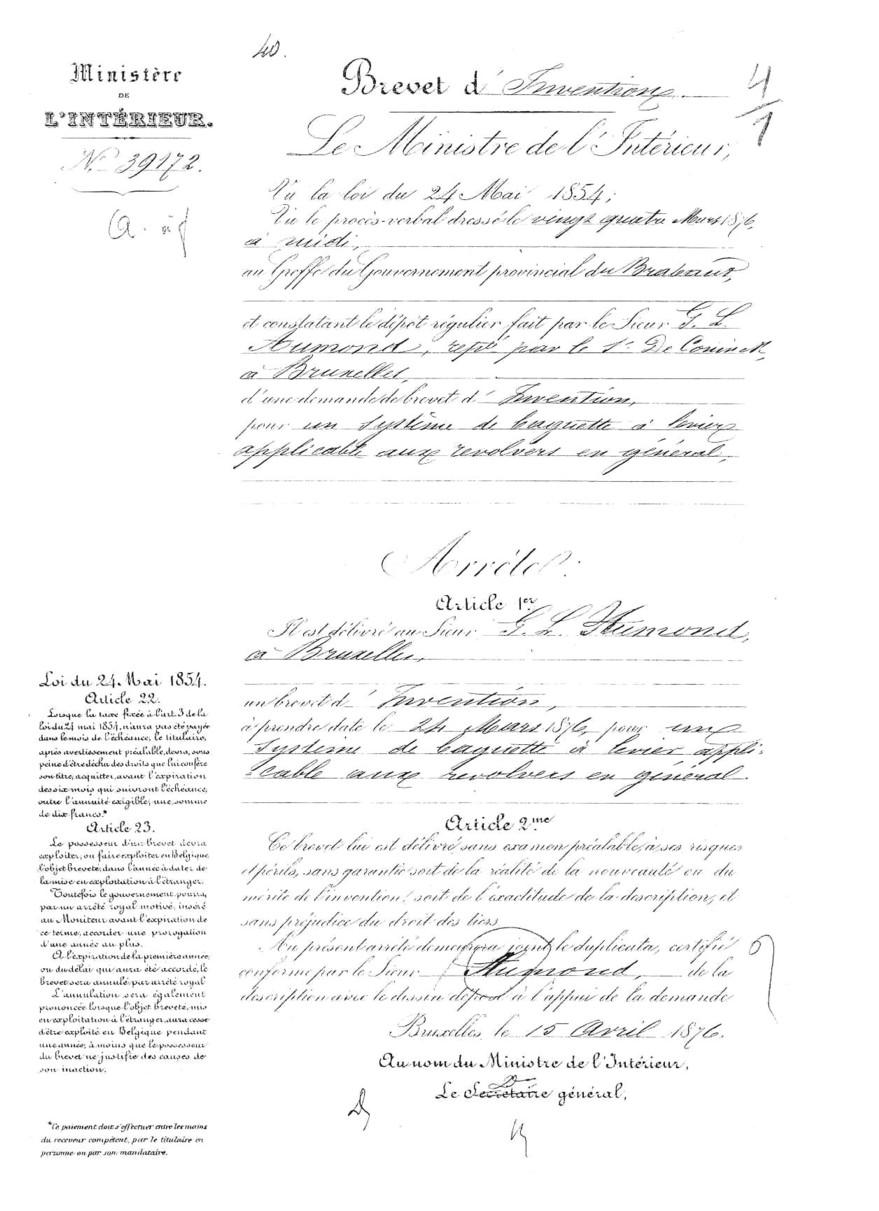 40.
Ministère
DE
L'INTÉRIEUR.
N° 39172.
Brevet d'Invention
4/1
Le Ministre de l'Intérieur,
Vu la loi du 24 Mai 1854;
Vu le procès-verbal dressé le vingt quatre Mars 1876,
à midi,
au Greffe du Gouvernement provincial du Brabant,
et constatant le dépôt régulier fait par le Sieur G. L.
Aumond, repé par le Sr De Coninck,
à Bruxelles,
d'une demande de brevet d'Invention,
pour un système de baguette à levier
applicable aux revolvers en général,
Arrête:
Article 1er
Il est délivré au Sieur G. L. Aumond,
à Bruxelles,
un brevet d'Invention,
à prendre date le 24 Mars 1876, pour un
système de baguette à levier appli-
cable aux revolvers en général.
Article 2me
Ce brevet lui est délivré sans examen préalable, à ses risques
et périls, sans garantie soit de la réalité de la nouveauté ou du
mérite de l'invention, soit de l'exactitude de la description, et
sans préjudice du droit des tiers.
Au présent arrêté demeurera joint le duplicata, certifié
conforme par le Sieur Aumond, de la
description avec le dessin déposé à l'appui de la demande
Bruxelles, le 15 Avril 1876.
Au nom du Ministre de l'Intérieur,
Le Secrétaire général,
Loi du 24 Mai 1854.
Article 22.
Lorsque la taxe fixée à l'art. 3 de la
loi du 24 mai 1854, n'aura pas été payée
dans le mois de l'échéance, le titulaire,
après avertissement préalable, devra, sous
peine d'être déchu des droits que lui confère
son titre, acquitter, avant l'expiration
des six mois qui suivront l'échéance,
outre l'annuité exigible, une somme
de dix francs.*
Article 23.
Le possesseur d'un brevet devra
exploiter, ou faire exploiter en Belgique,
l'objet breveté, dans l'année à dater de
la mise en exploitation à l'étranger.
Toutefois le gouvernement pourra,
par un arrêté royal motivé, inséré
au Moniteur avant l'expiration de
ce terme, accorder une prorogation
d'une année au plus.
A l'expiration de la première année,
ou du délai qui aura été accordé, le
brevet sera annulé par arrêté royal
L'annulation sera également
prononcée lorsque l'objet breveté, mis
en exploitation à l'étranger, aura cessé
d'être exploité en Belgique pendant
une année, à moins que le possesseur
du brevet ne justifie des causes de
son inaction.
*Ce paiement doit s'effectuer entre les mains
du receveur compétent, par le titulaire en
personne ou par son mandataire.